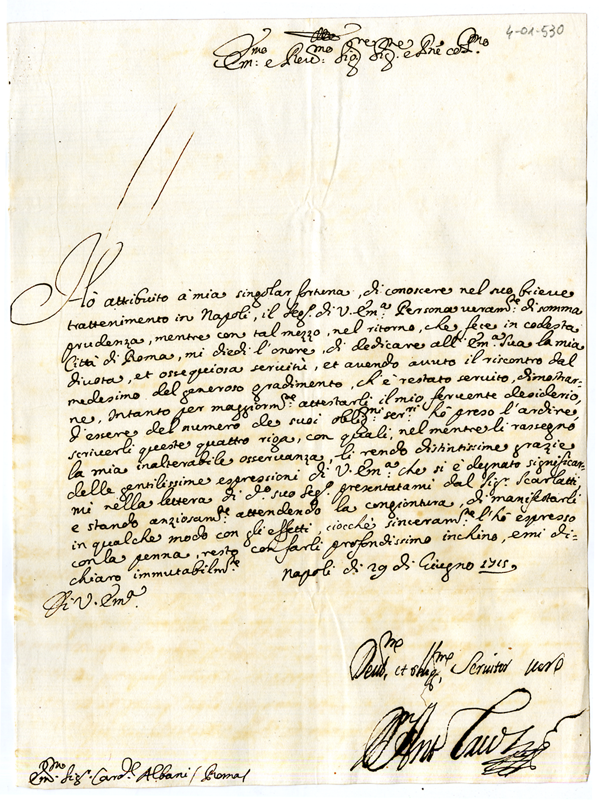 4-01-530
Em:mo e Rev:mo Sig:re Sig:re e P̃ne Col:mo
Hò attribuito à mia singolar fortuna, di conoscere nel suo brieve
trattenimento in Napoli, il Seg:o di V. Em:a Persona veram:te di somma
prudenza, mentre con tal mezzo, nel ritorno, che fece in codesta
Città di Roma, mi diedi l'onore, di dedicare all'Em:a Sua la mia
divota, et ossequiosa servitù, et avendo avuto il riscontro dal
medesimo del generoso gradimento, ch'è restato servito, dimostrar-
ne, Intanto per maggiorm:te attestarli il mio fervente desiderio,
d'essere del numero de suoi oblig:mi ser:ri hò preso l'ardire
scriverli queste quattro riga, con quali, nel mentre li rassegno
la mia inalterabile osservanza, li rendo distintissime grazie
delle gentilissime espressioni di V. Em:a che si è degnato significar-
mi nella lettera di d:o suo Seg:o presentatami dal Sig:r Scarlatti
e stando anziosam:te attendendo la congiontura, di manifestarli
in qualche modo con gli effetti, ciocchè sinceram:te l'hò espresso
con la penna, resto con farli profondissimo inchino, e mi di-
chiaro immutabilm:te
Napoli di 29 di Giugno 1715,
Di V. Em:a
Dev:mo et Oblig:mo Servitor vero
Em:mo Sig:r Card:l Albani / Roma /